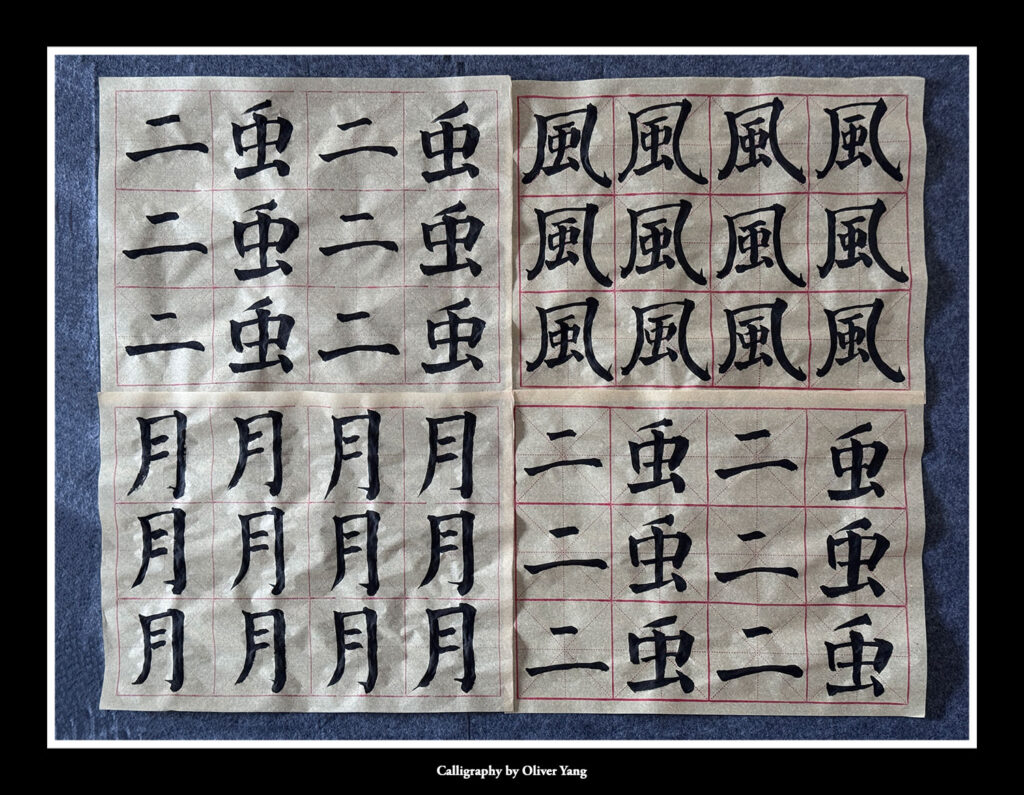 二 䖝 二 䖝
二 䖝 二 䖝
二 䖝 二 䖝
風 風 風 風
風 風 風 風
風 風 風 風
月 月 月 月
月 月 月 月
月 月 月 月
二 䖝 二 䖝
二 䖝 二 䖝
二 䖝 二 䖝
Calligraphy by Oliver Yang